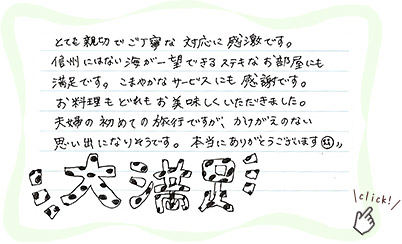 とても親切でご丁寧な対応に感激です。
信州にはない海が一望できるステキなお部屋にも
満足です。こまやかなサービスにも感謝です。
お料理もどれもお美味しくいただきました。
夫婦の初めての旅行ですが、かけがえのない
思い出になりそうです。本当にありがとうございます
大満足
click!